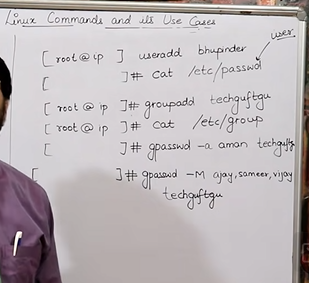 Linux Commands and its Use Cases
user
[root@ip ] useradd bhupinder
[ ]# cat /etc/passwd
[root@ip ]# groupadd techguftgu
[root@ip ]# cat /etc/group
[ ]# gpasswd -a aman techguftgu
[ ]# gpasswd -M ajay,sameer,vijay
techguftgu